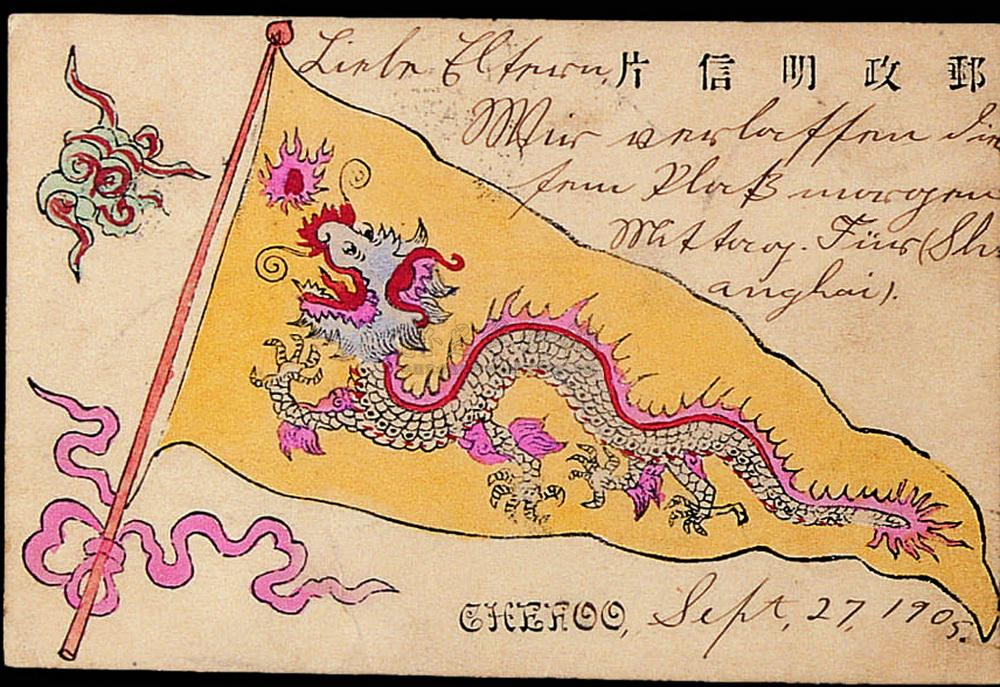 郵政明信片
Liebe Eltern,
Wir verlassen die
sen Platz morgen
Mittag. Für (Sh
anghai).
CHEFOO, Sept, 27, 1905.